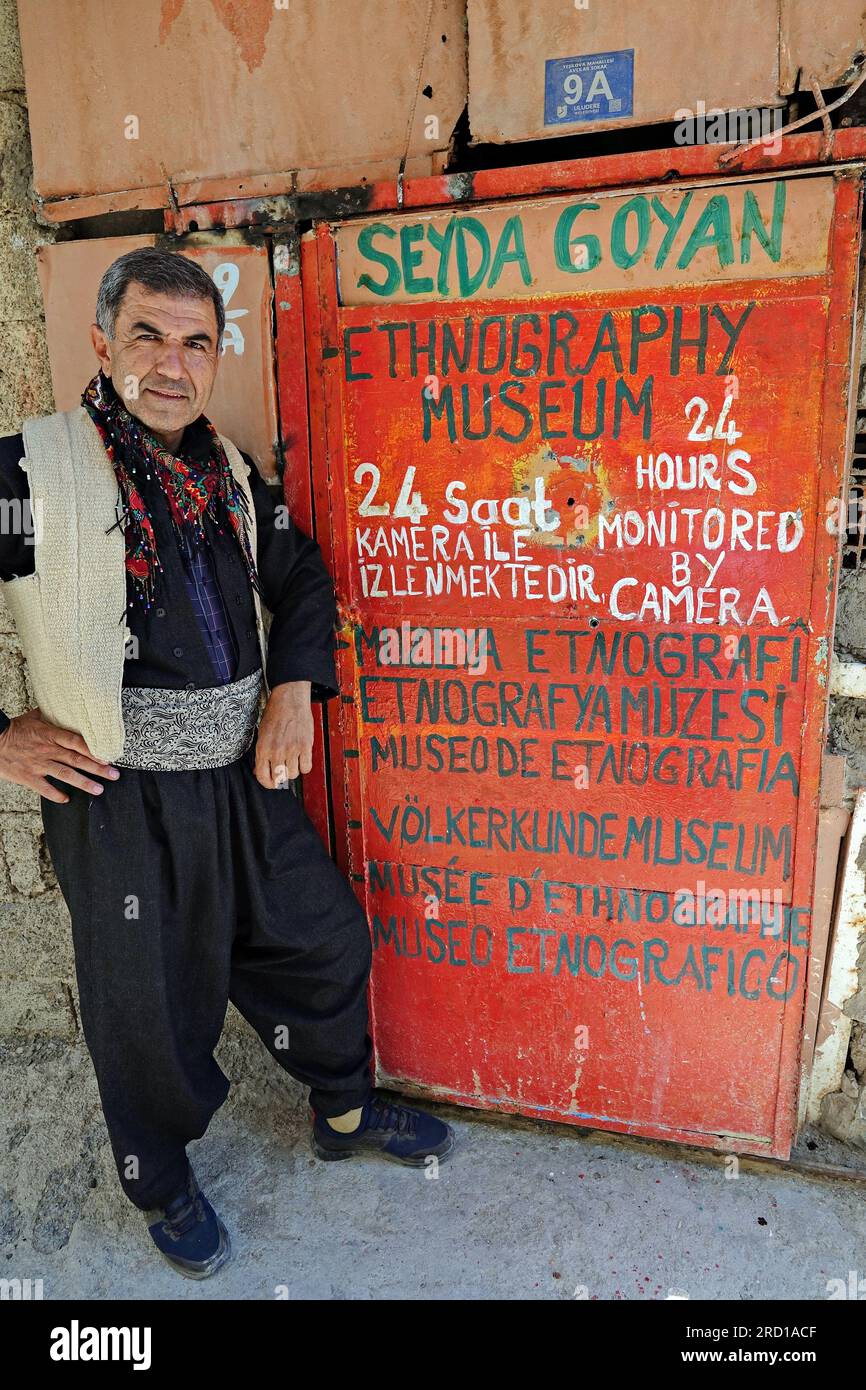 YEŞİLOVA MAHALLESİ
AVCILAR SOKAK
9A
ULUDERE
BELEDİYESİ
9
A
SEYDA GOYAN
- ETHNOGRAPHY
MUSEUM
24
HOURS
MONITORED
BY
CAMERA
24 Saat
KAMERA İLE
İZLENMEKTEDİR.
- MÛZEYA ETNOGRAFÎ
- ETNOGRAFYA MÜZESİ
- MUSEO DE ETNOGRAFIA
- VÖLKERKUNDEMUSEUM
- MUSÉE D'ETHNOGRAPHIE
MUSEO ETNOGRAFICO
alamy
alamy
Image ID: 2RD1ACF
www.alamy.com